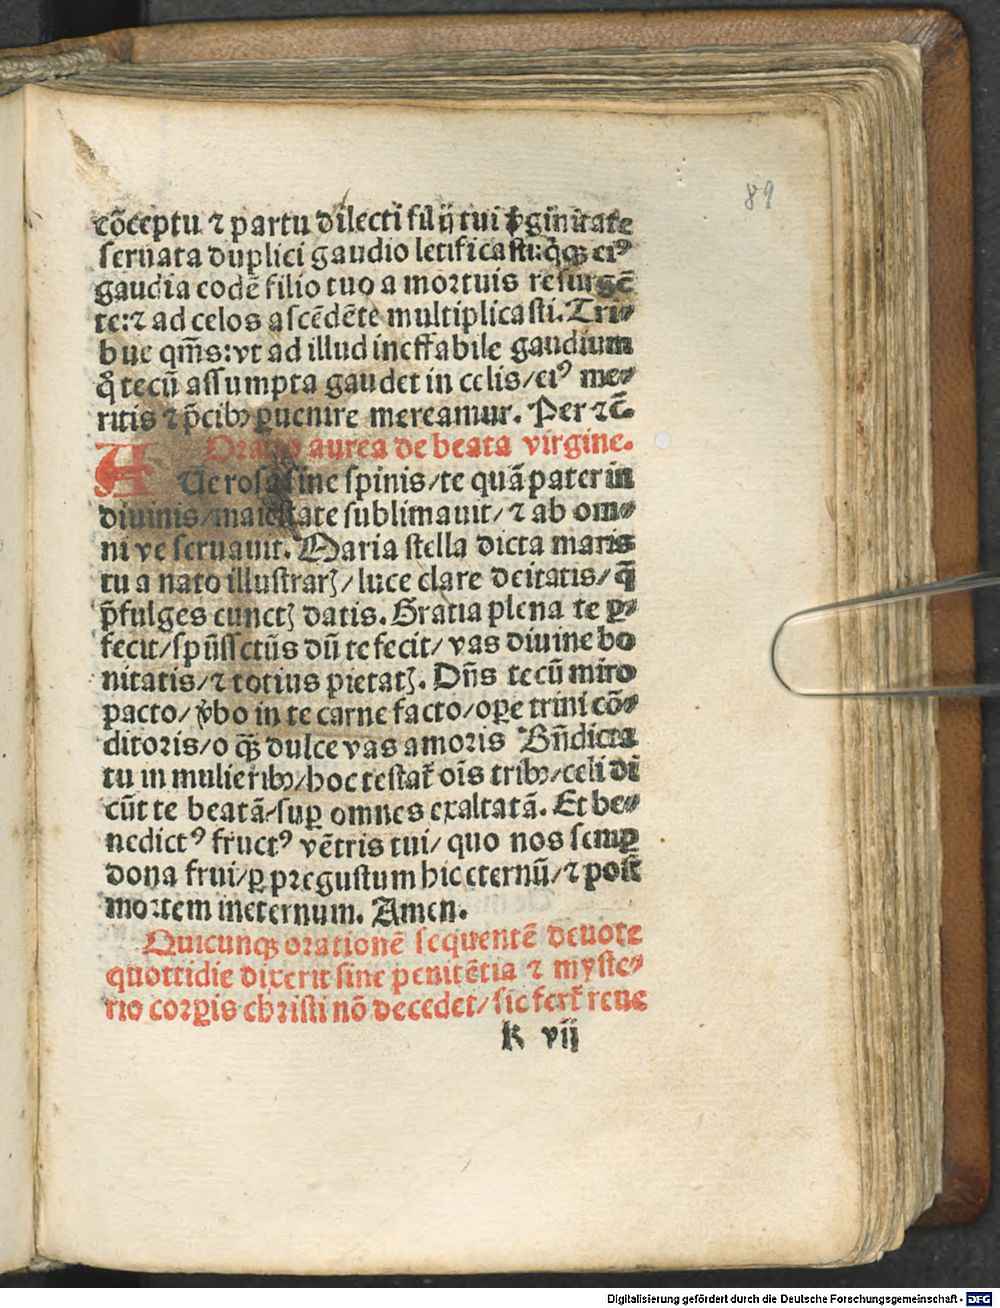 89
cōceptu ⁊ partu dilecti filij tui v̄ginitate
seruata duplici gaudio letificasti: q̄q₃ eiꝰ
gaudia eodē filio tuo a mortuis resurgē
te: ⁊ ad celos ascēdēte multiplicasti. Tri⸗
bue qm̄s: vt ad illud ineffabile gaudium
q̊ tecū assumpta gaudet in celis/ eiꝰ me⸗
ritis ⁊ p̄cibꝫ ꝑuenire mereamur. Per ⁊c̄.
Oratio aurea de beata virgine.
AUe rosa sine spinis/ te quā pater in
diuinis/ maiestate sublimauit/ ⁊ ab om⸗
ni ve seruauit. Maria stella dicta maris
tu a nato illustrarꝭ/ luce clare deitatis/ q̄
p̄fulges cunctꝭ datis. Gratia plena te ꝑ⸗
fecit/ spūssctūs dū te fecit/ vas diuine bo
nitatis/ ⁊ totius pietatꝭ. Dn̄s tecū miro
pacto/ v̄bo in te carne facto/ oꝑe trini cō⸗
ditoris/ o q̄₃ dulce vas amoris Bn̄dicta
tu in mulieribꝫ/ hoc testat̄ oīs tribꝫ/ celi di
cūt te beatā/ suꝑ omnes exaltatā. Et be⸗
nedictꝰ fructꝰ vētris tui/ quo nos semꝑ
dona frui/ ꝑ pregustum hic eternū/ ⁊ post
mortem ineternum. Amen.
Quicunqꝫ orationē sequentē deuote
quottidie dixerit sine penitētia ⁊ myste⸗
rio corꝑis christi nō decedet/ sic fert̄ reue
k vij
Digitalisierung gefördert durch die Deutsche Forschungsgemeinschaft - DFG